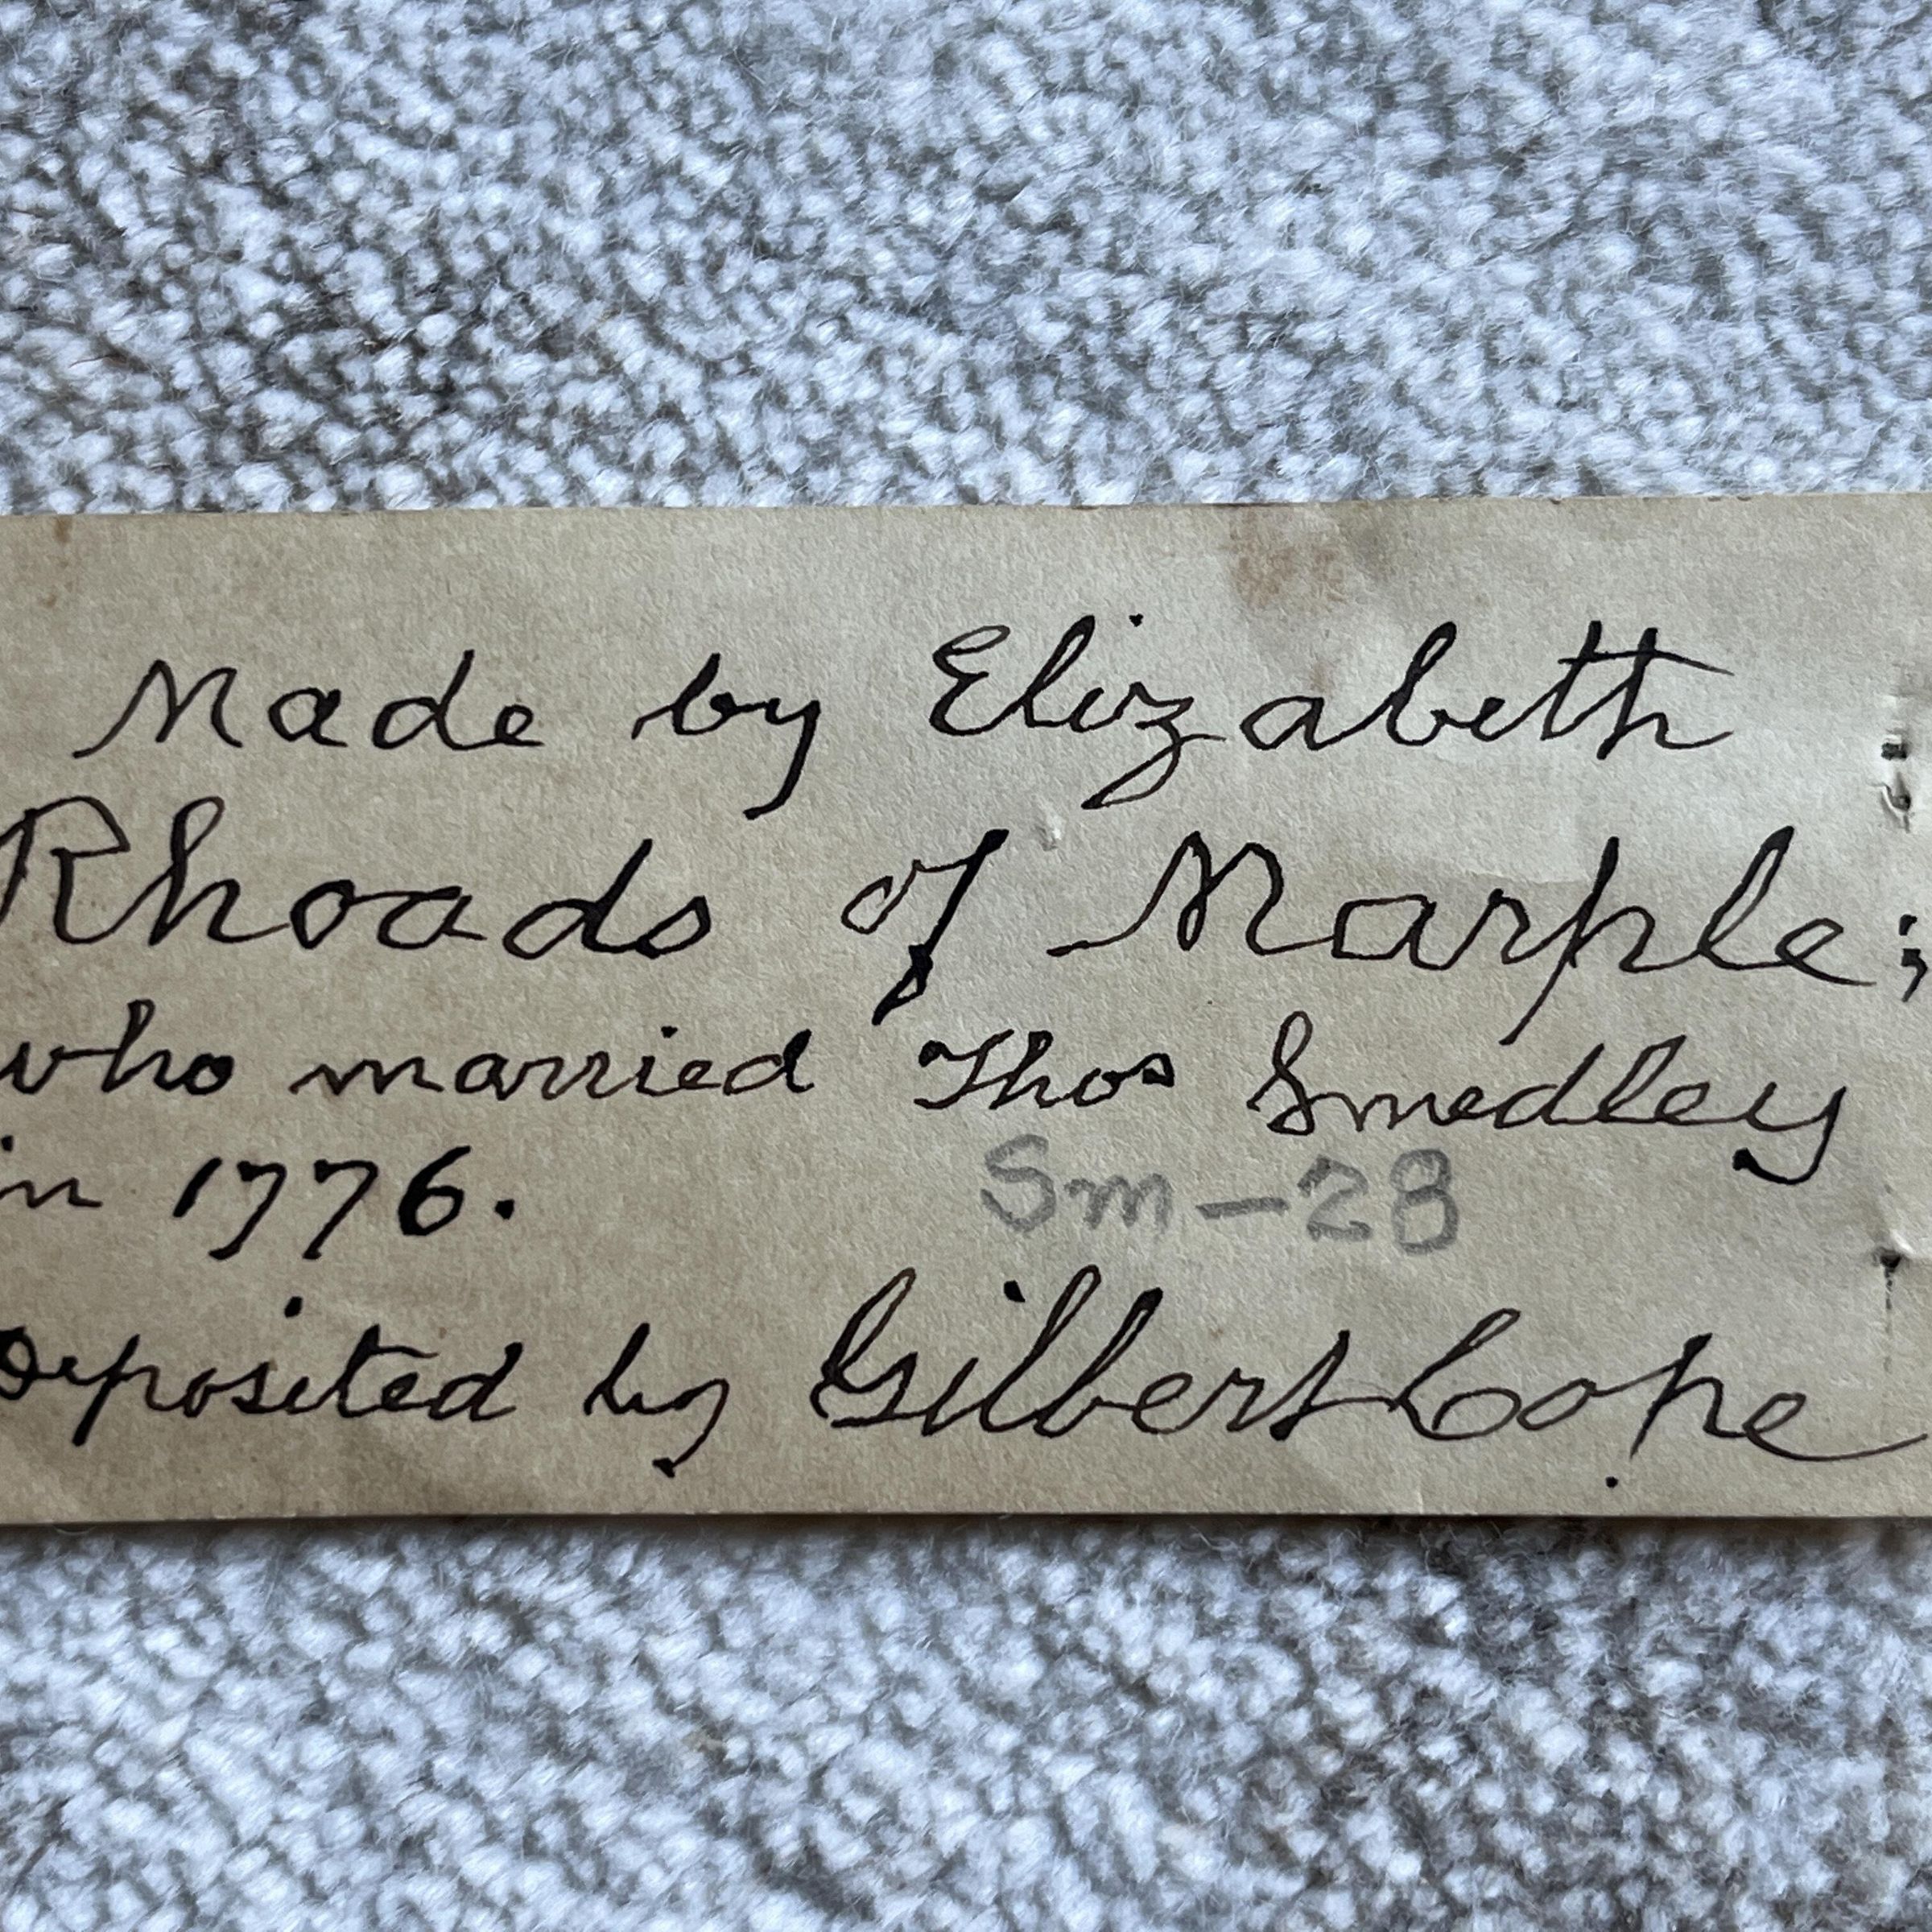 Made by Elizabeth
Rhoads of Marple;
who married Thos Smedley
in 1776.
Sm-28
Deposited by Gilbert Cope